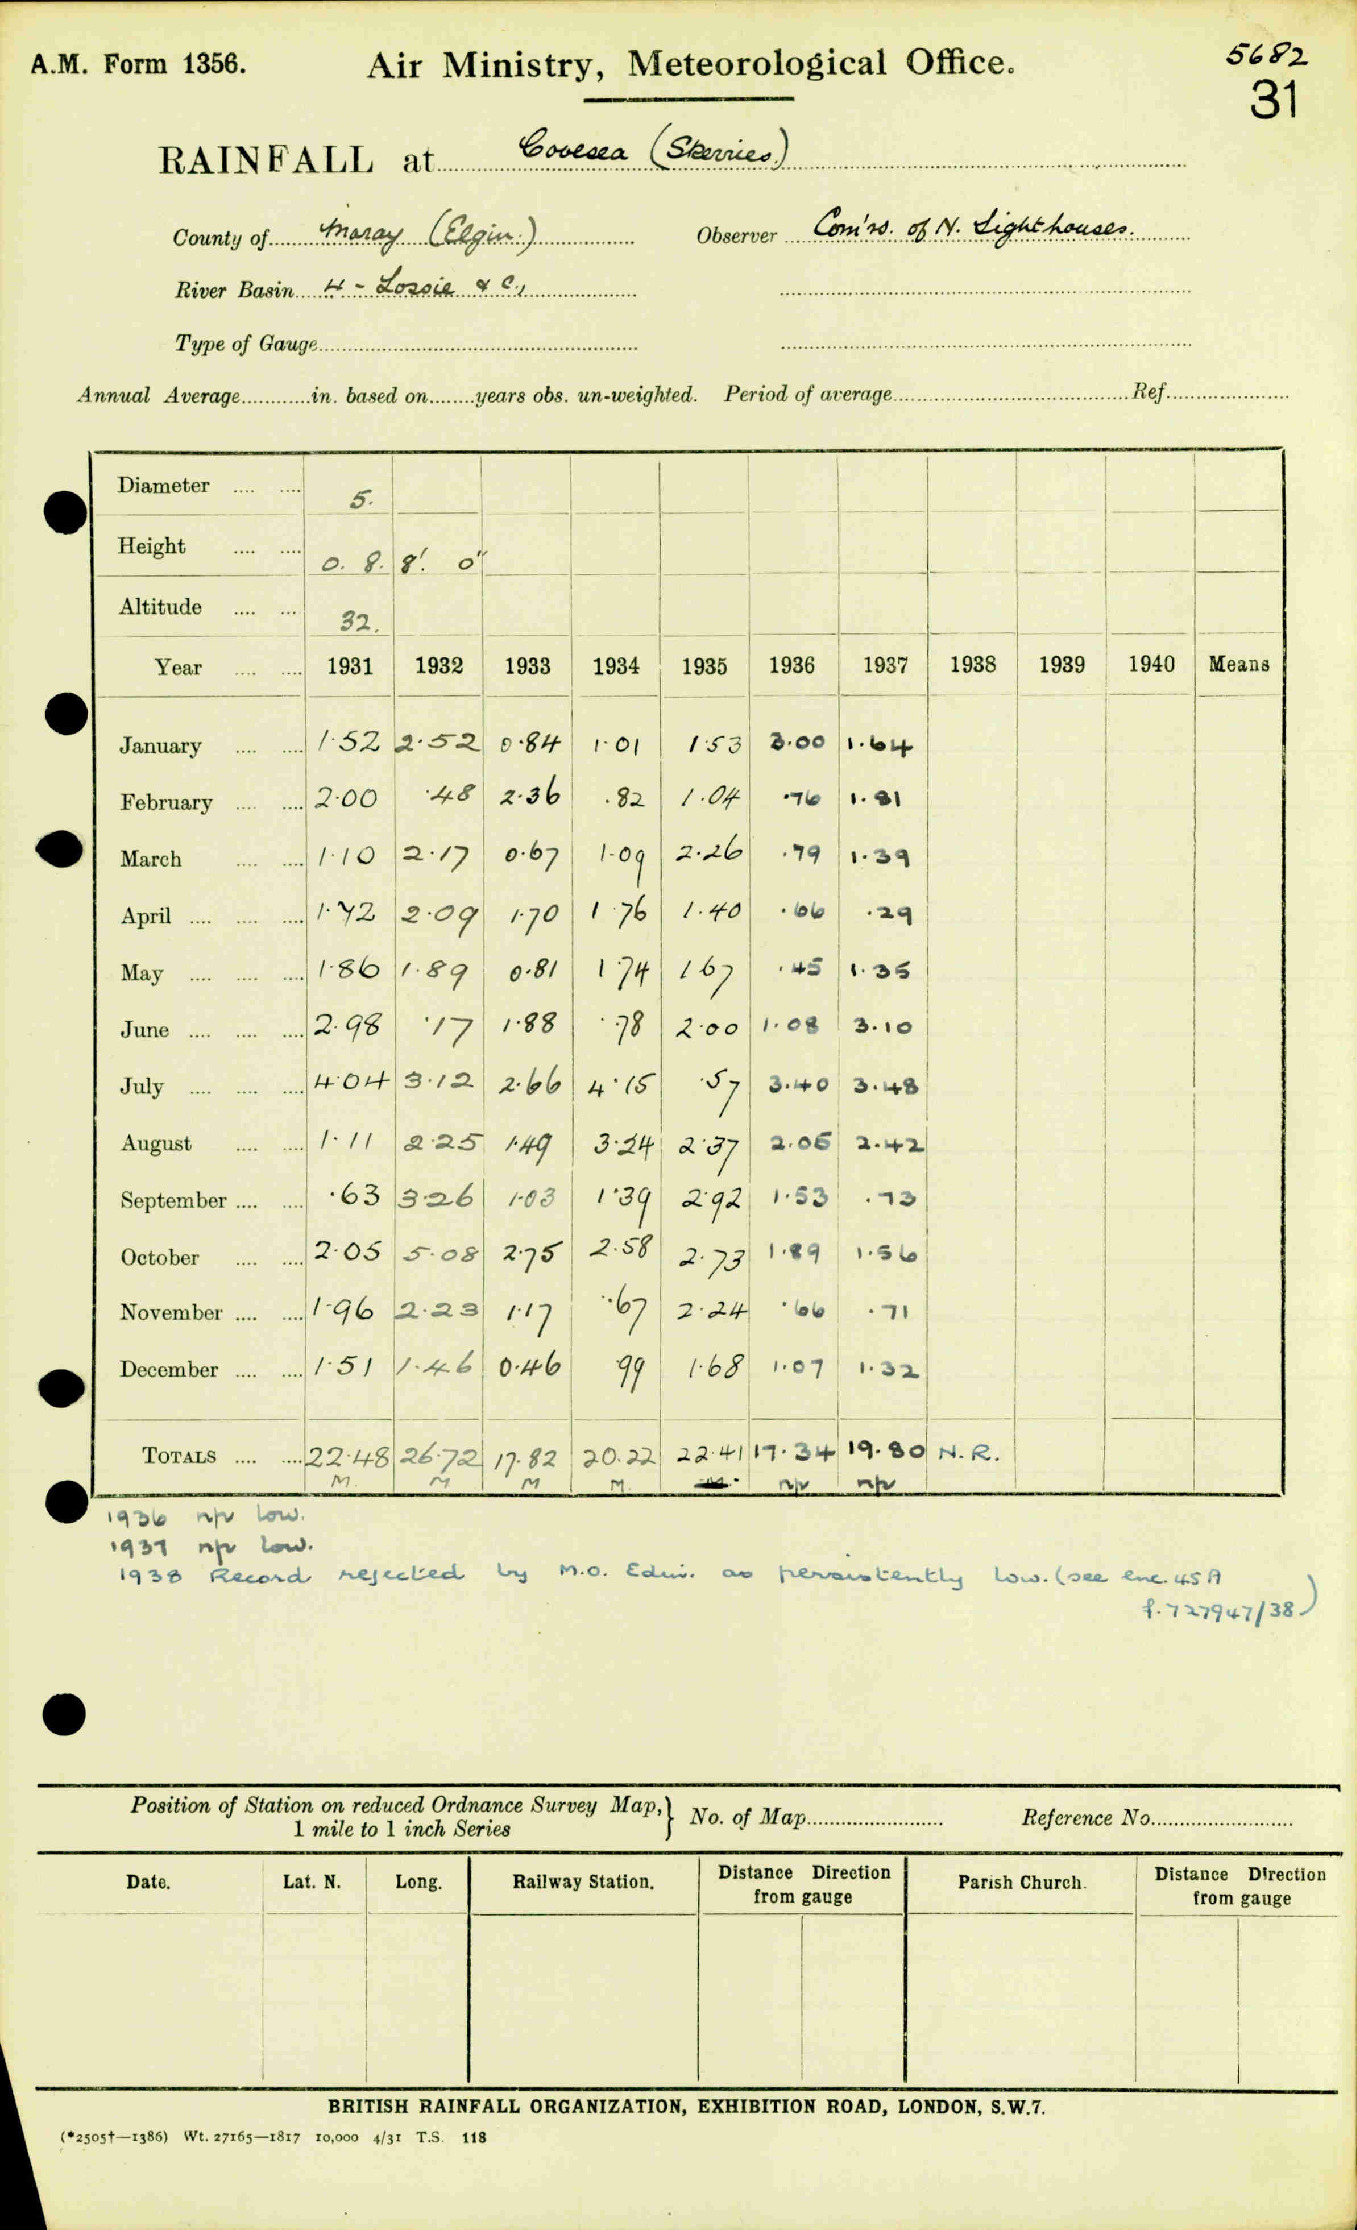 A.M. Form 1356.
Air Ministry, Meteorological Office.
5682
31
RAINFALL at Covesea (Skerries.)
County of Moray (Elgin.) Observer Com'rs. of N. Lighthouses.
River Basin 4 - Lossie & C.,
Type of Gauge
Annual Average in. based on years obs. un-weighted. Period of average Ref.
Diameter 5.
Height 0. 8. 8'. 0"
Altitude 32.
Year 1931 1932 1933 1934 1935 1936 1937 1938 1939 1940 Means
January 1·52 2·52 0·84 1·01 1·53 3·00 1·64
February 2·00 ·48 2·36 ·82 1·04 ·76 1·81
March 1·10 2·17 0·67 1·09 2·26 ·79 1·39
April 1·72 2·09 1·70 1 76 1·40 ·66 ·29
May 1·86 1·89 0·81 1 74 1 67 ·45 1·35
June 2·98 ·17 1·88 ·78 2·00 1·08 3·10
July 4·04 3·12 2·66 4·15 ·57 3·40 3·48
August 1·11 2·25 1·49 3·24 2·37 2·05 2·42
September ·63 3·26 1·03 1·39 2·92 1·53 ·73
October 2·05 5·08 2·75 2·58 2·73 1·89 1·56
November 1·96 2·23 1·17 ·67 2·24 ·66 ·71
December 1·51 1·46 0·46 99 1·68 1·07 1·32
TOTALS 22·48 26·72 17·82 20·22 22·41 17·34 19·80 N.R.
M. M M M. M. np np
1936 np low.
1937 np low.
1938 Record rejected by M.O. Edin. as persistently low. (see enc. 45A
f.727947/38)
Position of Station on reduced Ordnance Survey Map, } No. of Map Reference No.
1 mile to 1 inch Series
Date. Lat. N. Long. Railway Station. Distance Direction from gauge Parish Church. Distance Direction from gauge
BRITISH RAINFALL ORGANIZATION, EXHIBITION ROAD, LONDON, S.W.7.
(*2505†—1386) Wt. 27165—1817 10,000 4/31 T.S. 118